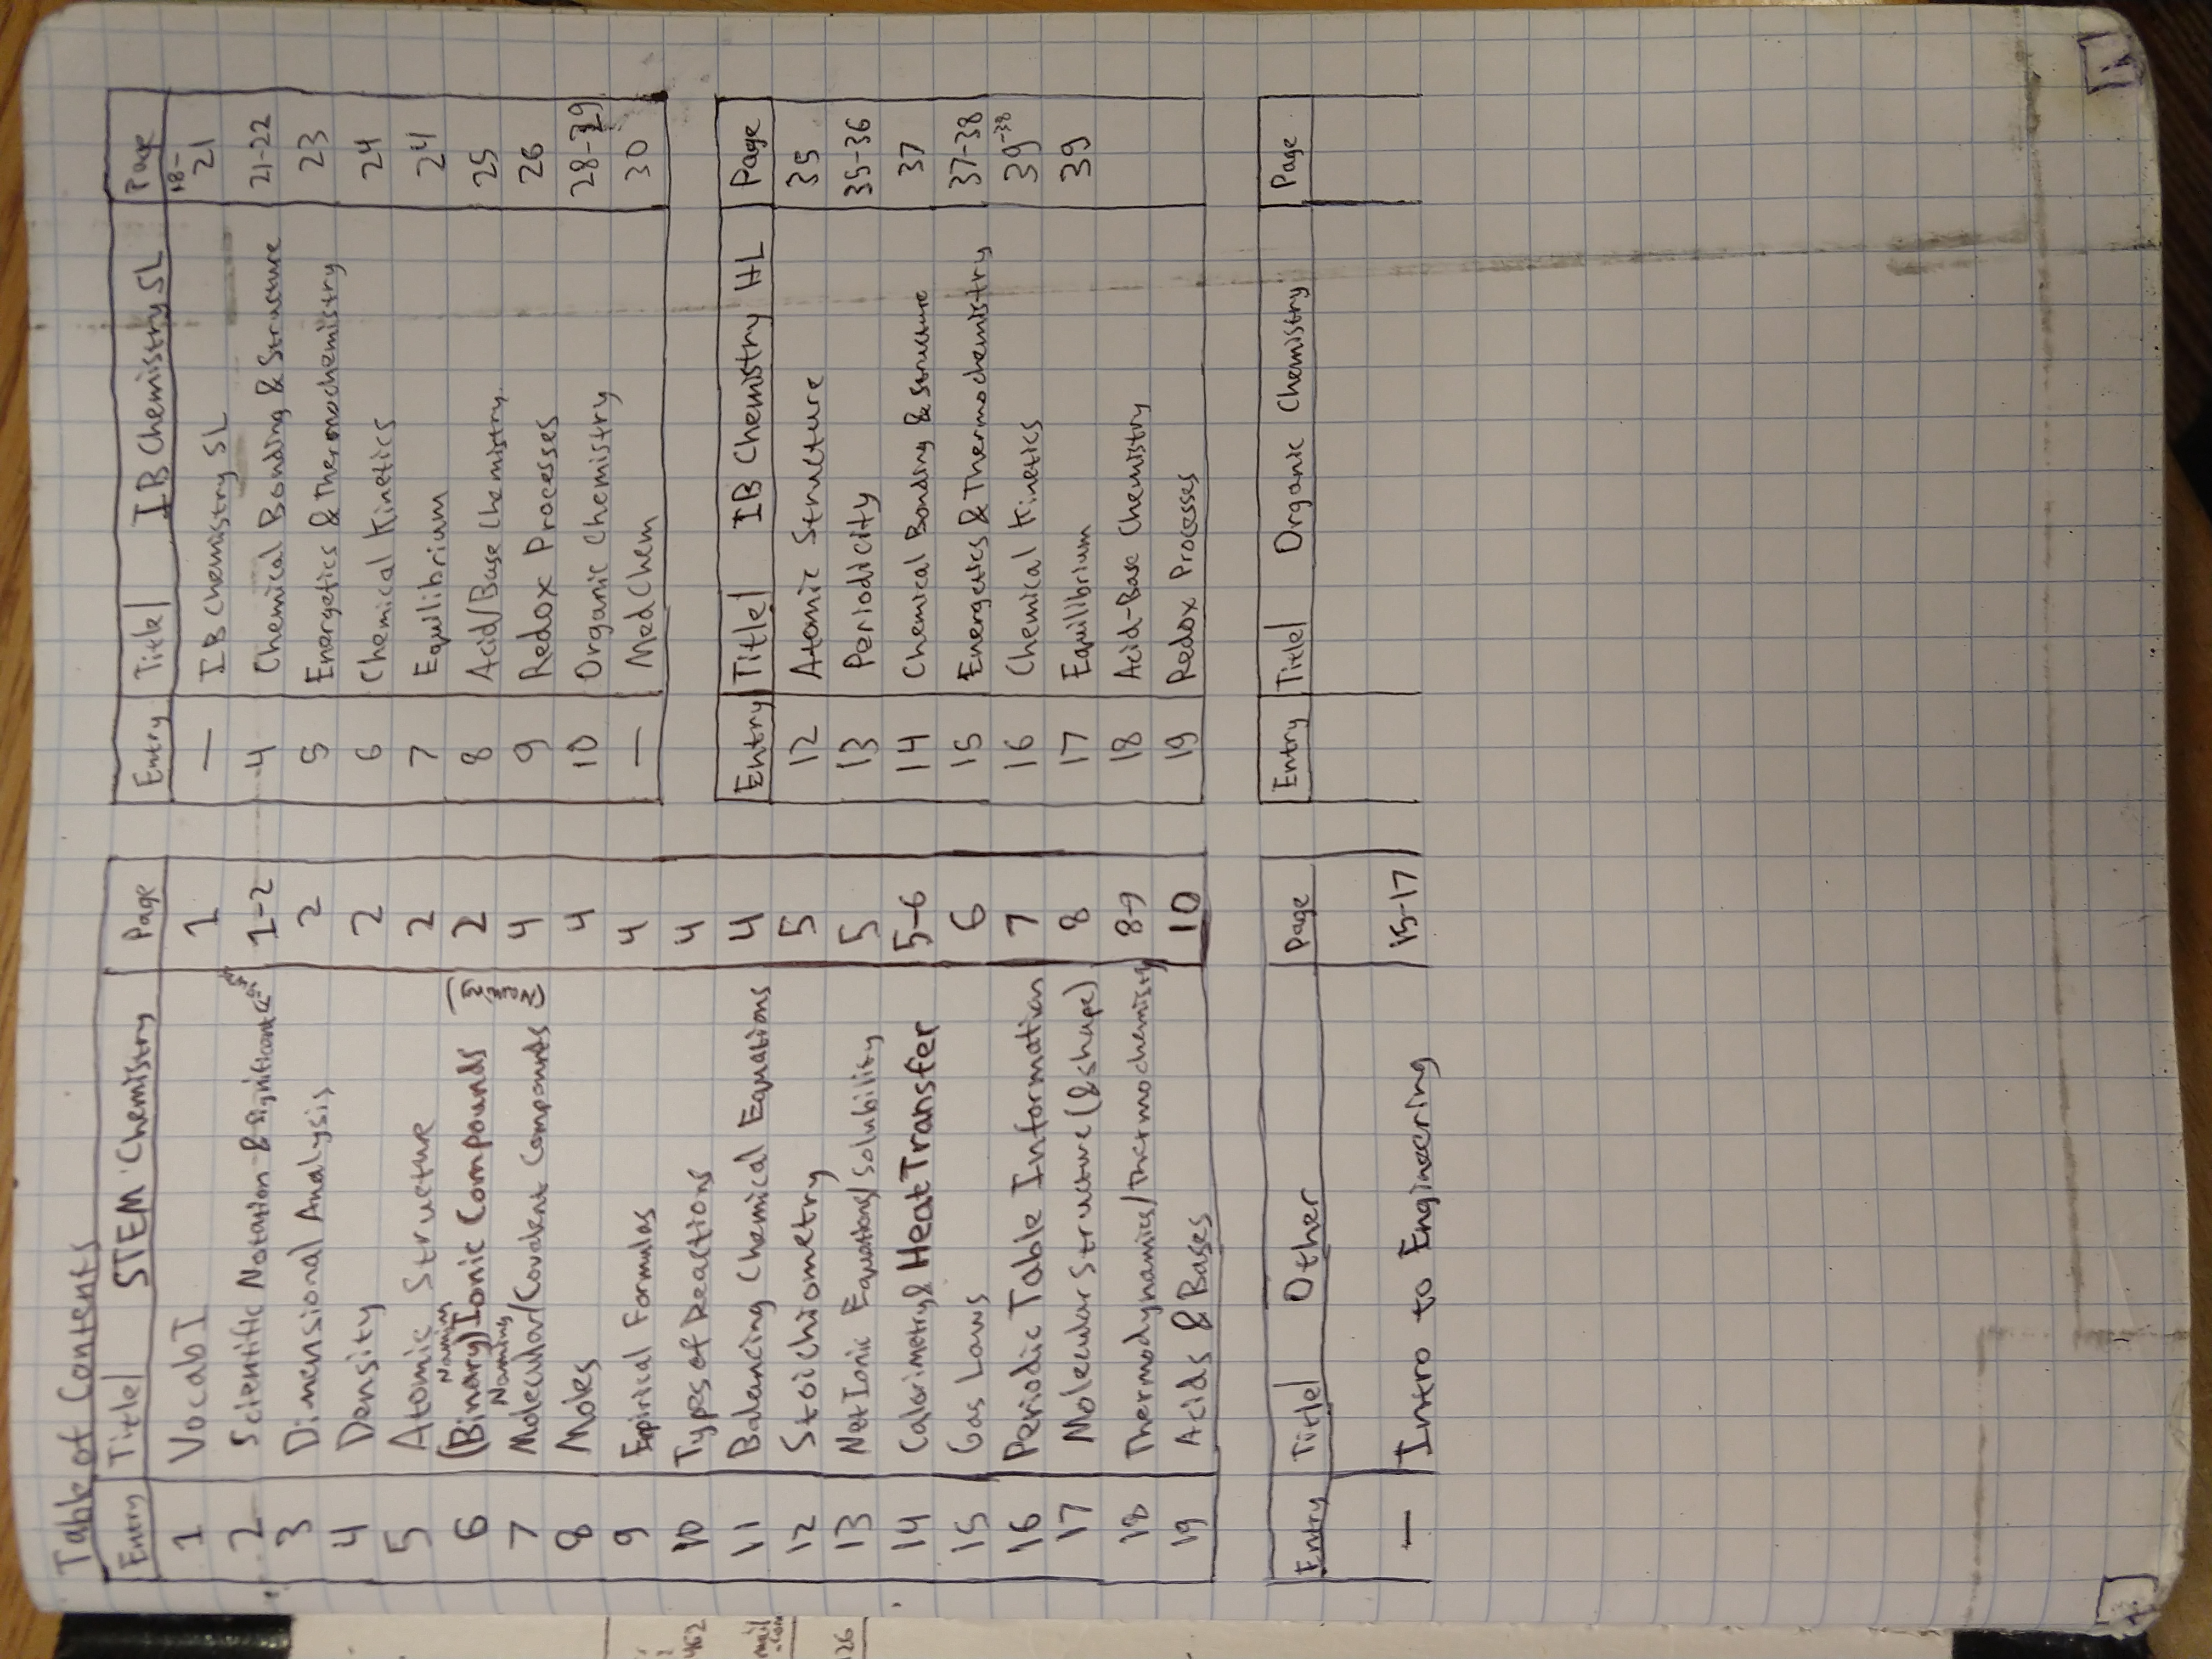 Table of Contents
Entry Title STEM Chemistry Page
1 Vocab I 1
2 Scientific Notation & Significant Figures 1-2
3 Dimensional Analysis 2
4 Density 2
5 Atomic Structure 2
Naming
6 (Binary) Ionic Compounds (Naming) 2
Naming
7 Molecular/Covalent Compounds 4
8 Moles 4
9 Empirical Formulas 4
10 Types of Reactions 4
11 Balancing Chemical Equations 4
12 Stoichiometry 5
13 Net Ionic Equations/Solubility 5
14 Calorimetry & Heat Transfer 5-6
15 Gas Laws 6
16 Periodic Table Information 7
17 Molecular Structure (& shape) 8
18 Thermodynamics/Thermochemistry 8-9
19 Acids & Bases 10
Entry Title Other Page
— Intro to Engineering 15-17
Entry Title IB Chemistry SL Page
— IB Chemistry SL 18-21
4 Chemical Bonding & Structure 21-22
5 Energetics & Thermochemistry 23
6 Chemical Kinetics 24
7 Equilibrium 24
8 Acid/Base Chemistry 25
9 Redox Processes 26
10 Organic Chemistry 28-29
— MedChem 30
Entry Title IB Chemistry HL Page
12 Atomic Structure 35
13 Periodicity 35-36
14 Chemical Bonding & Structure 37
15 Energetics & Thermochemistry 37-38
16 Chemical Kinetics 39-38
17 Equilibrium 39
18 Acid-Base Chemistry
19 Redox Processes
Entry Title Organic Chemistry Page
462
mail
.com
126